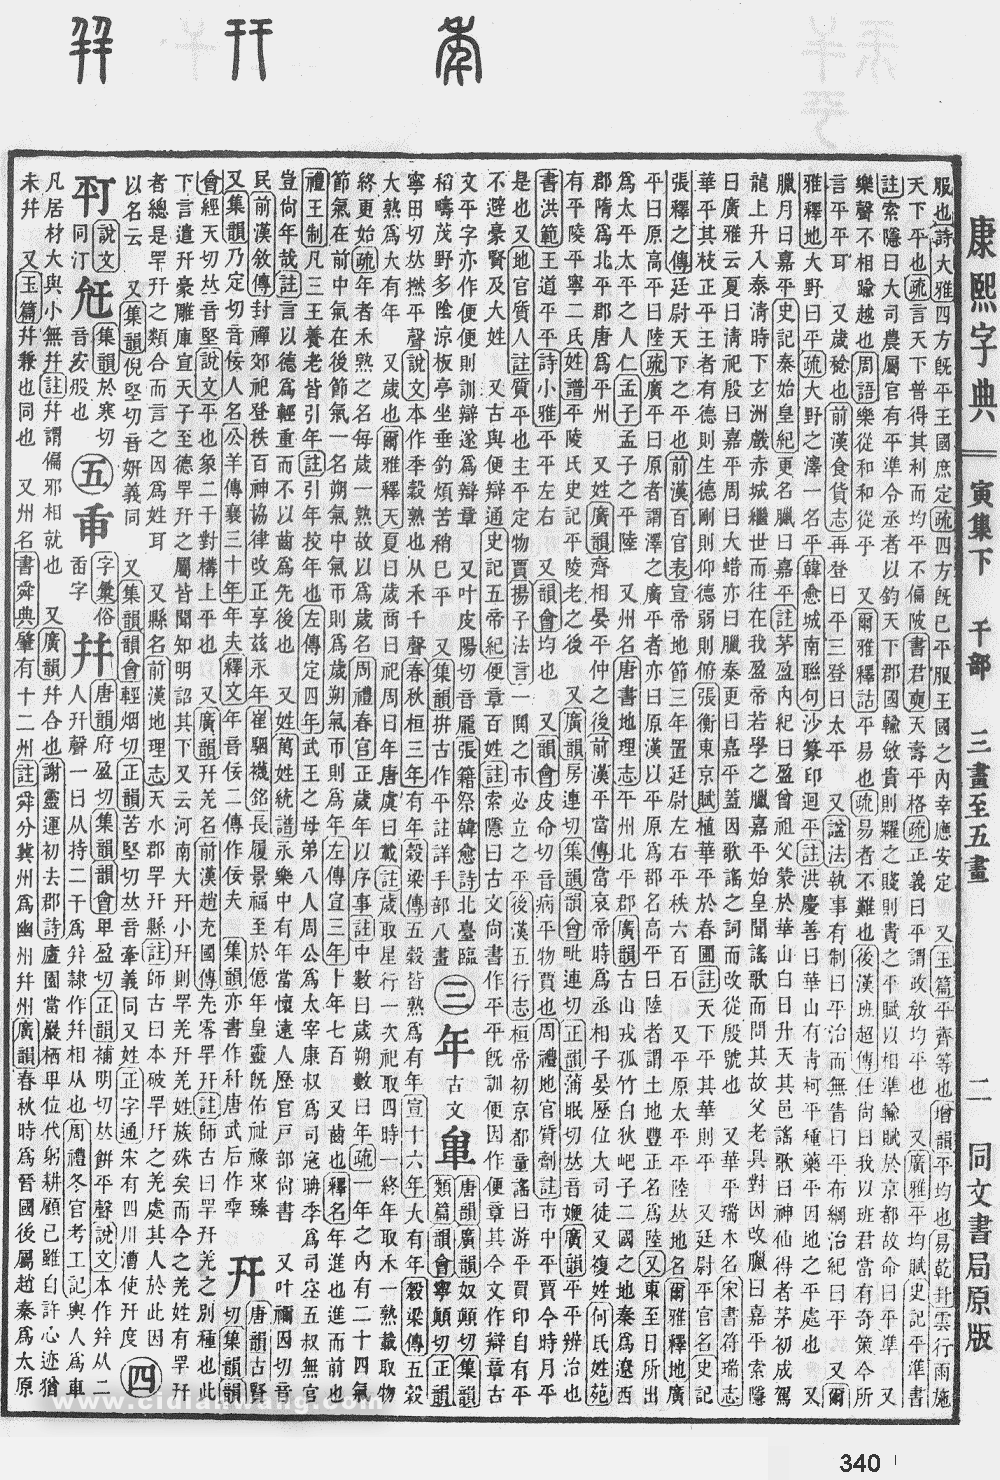 康熙字典 寅集下 干部 三畫至五畫 二 同文書局原版
服也詩大雅四方旣平王國庶定疏四方旣已平服王國之內幸應安定 又玉篇平齊等也增韻平均也易乾卦雲行雨施
天下平也疏言天下普得其利而均平不偏陂書君奭天壽平格疏正義曰平謂政敎均平也 又廣雅平均賦史記平準書
註索隱曰大司農屬官有平準令丞者以鈞天下郡國輸斂貴則糶之賤則買之平賦以相準輸賦於京都故命曰平準 又
樂聲不相踰越也周語樂從和和從平 又爾雅釋詁平易也疏易者不難也後漢班超傳任尙曰我以班君當有奇策今所
言平平耳 又歲稔也前漢食貨志再登曰平三登曰太平 又諡法執事有制曰平治而無眚曰平布綱治紀曰平 又爾
雅釋地大野曰平疏大野之澤一名平韓愈城南聯句沙篆印迴平註洪慶善曰華山有靑柯平種藥平因地之平處也 又
臘月曰嘉平史記秦始皇紀更名臘曰嘉平註茅盈內紀曰盈曾祖父蒙於華山白日升天其邑謠歌曰神仙得者茅初成駕
龍上升入泰淸時下玄洲戲赤城繼世而往在我盈帝若學之臘嘉平始皇聞謠歌而問其故父老具對因改臘曰嘉平索隱
曰廣雅云夏曰淸祀殷曰嘉平周曰大蜡亦曰臘秦更曰嘉平蓋因歌謠之詞而改從殷號也 又華平瑞木名宋書符瑞志
華平其枝正平王者有德則生德剛則仰德弱則俯張衡東京賦植華平於春圃註天下平其華則平 又廷尉平官名史記
張釋之傳廷尉天下之平也前漢百官表宣帝地節三年置廷尉左右平秩六百石 又平原太平平陸𠀤地名爾雅釋地廣
平曰原高平曰陸疏廣平曰原者謂澤之廣平者亦曰原漢以平原爲郡名高平曰陸者謂土地豐正名爲陸又東至日所出
爲太平太平之人仁孟子孟子之平陸 又州名唐書地理志平州北平郡廣韻古山戎孤竹白狄肥子二國之地秦爲遼西
郡隋爲北平郡唐爲平州 又姓廣韻齊相晏平仲之後前漢平當傳當哀帝時爲丞相子晏歷位大司徒又復姓何氏姓苑
有平陵平寧二氏姓譜平陵氏史記平陵老之後 又廣韻房連切集韻韻會毗連切正韻蒲眠切𠀤音㛹廣韻平平辨治也
書洪範王道平平詩小雅平平左右 又韻會均也 又韻會皮命切音病平物賈也周禮地官質劑註市中平賈今時月平
是也又地官質人註質平也主平定物賈揚子法言一鬨之市必立之平後漢五行志桓帝初京都童謠曰游平賣印自有平
不避豪賢及大姓 又古與便辯通史記五帝紀便章百姓註索隱曰古文尙書作平平旣訓便因作便章其今文作辯章古
文平字亦作便便則訓辯遂爲辯章 又叶皮陽切音龐張籍祭韓愈詩北臺臨
稻疇茂野多陰涼板亭坐垂釣煩苦稍已平 又集韻拚古作平註詳手部八畫 三 年 古文 唐韻廣韻奴顚切集韻類篇韻會寧顚切正韻
寧田切𠀤撚平聲說文本作秊穀熟也从禾千聲春秋桓三年有年穀梁傳五穀皆熟爲有年宣十六年大有年穀梁傳五穀
大熟爲大有年 又歲也爾雅釋天夏曰歲商曰祀周曰年唐虞曰載註歲取星行一次祀取四時一終年取禾一熟載取物
終更始疏年者禾熟之名每歲一熟故以爲歲名周禮春官正歲年以序事註中數曰歲朔數曰年疏一年之內有二十四氣
節氣在前中氣在後節氣一名朔氣中氣帀則爲歲朔氣帀則爲年左傳宣三年卜年七百 又齒也釋名年進也進而前也
禮王制凡三王養老皆引年註引年校年也左傳定四年武王之母弟八人周公爲太宰康叔爲司寇聃季爲司空五叔無官
豈尙年哉註言以德爲輕重而不以齒爲先後也 又姓萬姓統譜永樂中有年當懷遠人歷官戶部尙書 又叶禰因切音
民前漢敘傳封禪郊祀登秩百神協律改正享茲永年崔駰襪銘長履景福至於億年皇靈旣佑祉祿來臻
又集韻乃定切音佞人名公羊傳襄三十年年夫釋文年音佞二傳作佞夫 集韻亦書作秊唐武后作𠡦 幵 唐韻古賢切集韻韻
會經天切𠀤音堅說文平也象二干對構上平也 又廣韻幵羌名前漢趙充國傳先零罕幵註師古曰罕幵羌之別種也此
下言遣幵豪雕庫宣天子至德罕幵之屬皆聞知明詔其下又云河南大幵小幵則罕羌幵羌姓族殊矣而今之羌姓有罕幵
者總是罕幵之類合而言之因爲姓耳 又縣名前漢地理志天水郡罕幵縣註師古曰本破罕幵之羌處其人於此因
以名云 又集韻倪堅切音姸義同 又集韻韻會輕烟切正韻苦堅切𠀤音牽義同又姓正字通宋有四川漕使幵度 四
說文同汀 集韻於寒切音安股也 五 字彙俗面字 幷 唐韻府盈切集韻韻會卑盈切正韻補明切𠀤餠平聲說文本作幷从二人幵聲一曰从持二干爲幷隸作幷相从也周禮冬官考工記輿人爲車
凡居材大與小無幷註幷謂偏邪相就也 又廣韻幷合也謝靈運初去郡詩廬園當巖栖卑位代躬耕顧已雖自許心迹猶
未幷 又玉篇幷兼也同也 又州名書舜典肇有十二州註舜分冀州爲幽州幷州廣韻春秋時爲晉國後屬趙秦爲太原
www.cidianwang.com
340